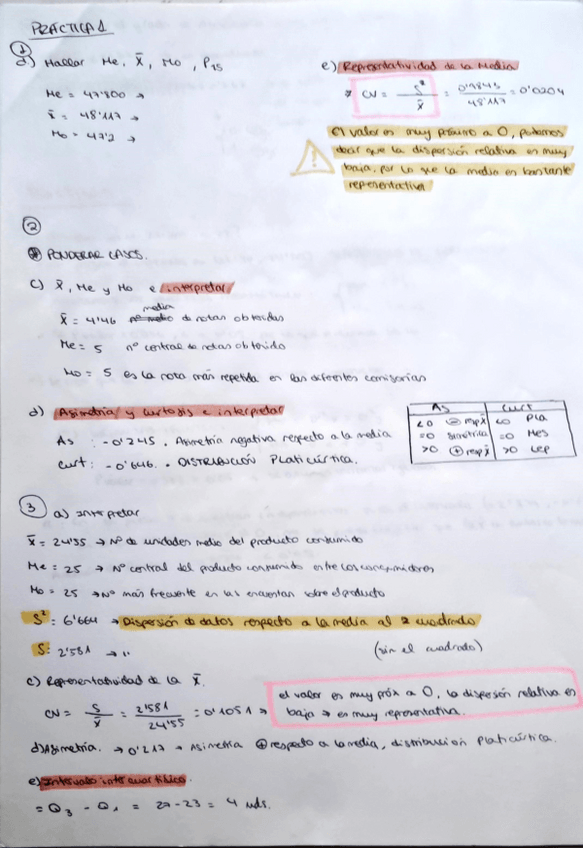 PRÁCTICA 1
①
d) Hallar Me, x̄, Mo, P75
Me = 47'800 →
x̄ = 48'117 →
Mo = 47'2 →
e) Representatividad de la Media
CV = S² / x̄ = 0'9845 / 48'117 = 0'0204
El valor es muy próximo a 0, podemos
decir que la dispersión relativa es muy
baja, por lo que la media es bastante
representativa
②
PONDERAR CASOS.
c) x̄, Me y Mo e interpretar
x̄ = 4'46 media de notas obtenidas
Me = 5 nº central de notas obtenido
Mo = 5 es la nota más repetida en las diferentes comisarías
d) Asimetría y curtosis e interpretar
As : -0'245 . Asimetría negativa respecto a la media
Curt : -0'646 . DISTRIBUCIÓN Platicúrtica.
As | Curt
<0 ⊖ resp x̄ | <0 Pla
=0 simétrica | =0 Mes
>0 ⊕ resp x̄ | >0 Lep
③ a) Interpretar
x̄ = 24'55 → Nº de unidades medio del producto consumido
Me = 25 → Nº central del producto consumido entre los consumidores
Mo = 25 → Nº más frecuente en las encuestas sobre el producto
S² = 6'664 → Dispersión de datos respecto a la media al cuadrado
S: 2'581 → " (sin el cuadrado)
c) Representatividad de la x̄.
CV = S / x̄ = 2'581 / 24'55 = 0'1051 →
el valor es muy próx a 0, la dispersión relativa es
baja → es muy representativa.
d) Asimetría. → 0'217 → Asimetría ⊕ respecto a la media, distribución Platicúrtica.
e) Intervalo intercuartílico
= Q3 - Q1 = 27 - 23 = 4 uds.